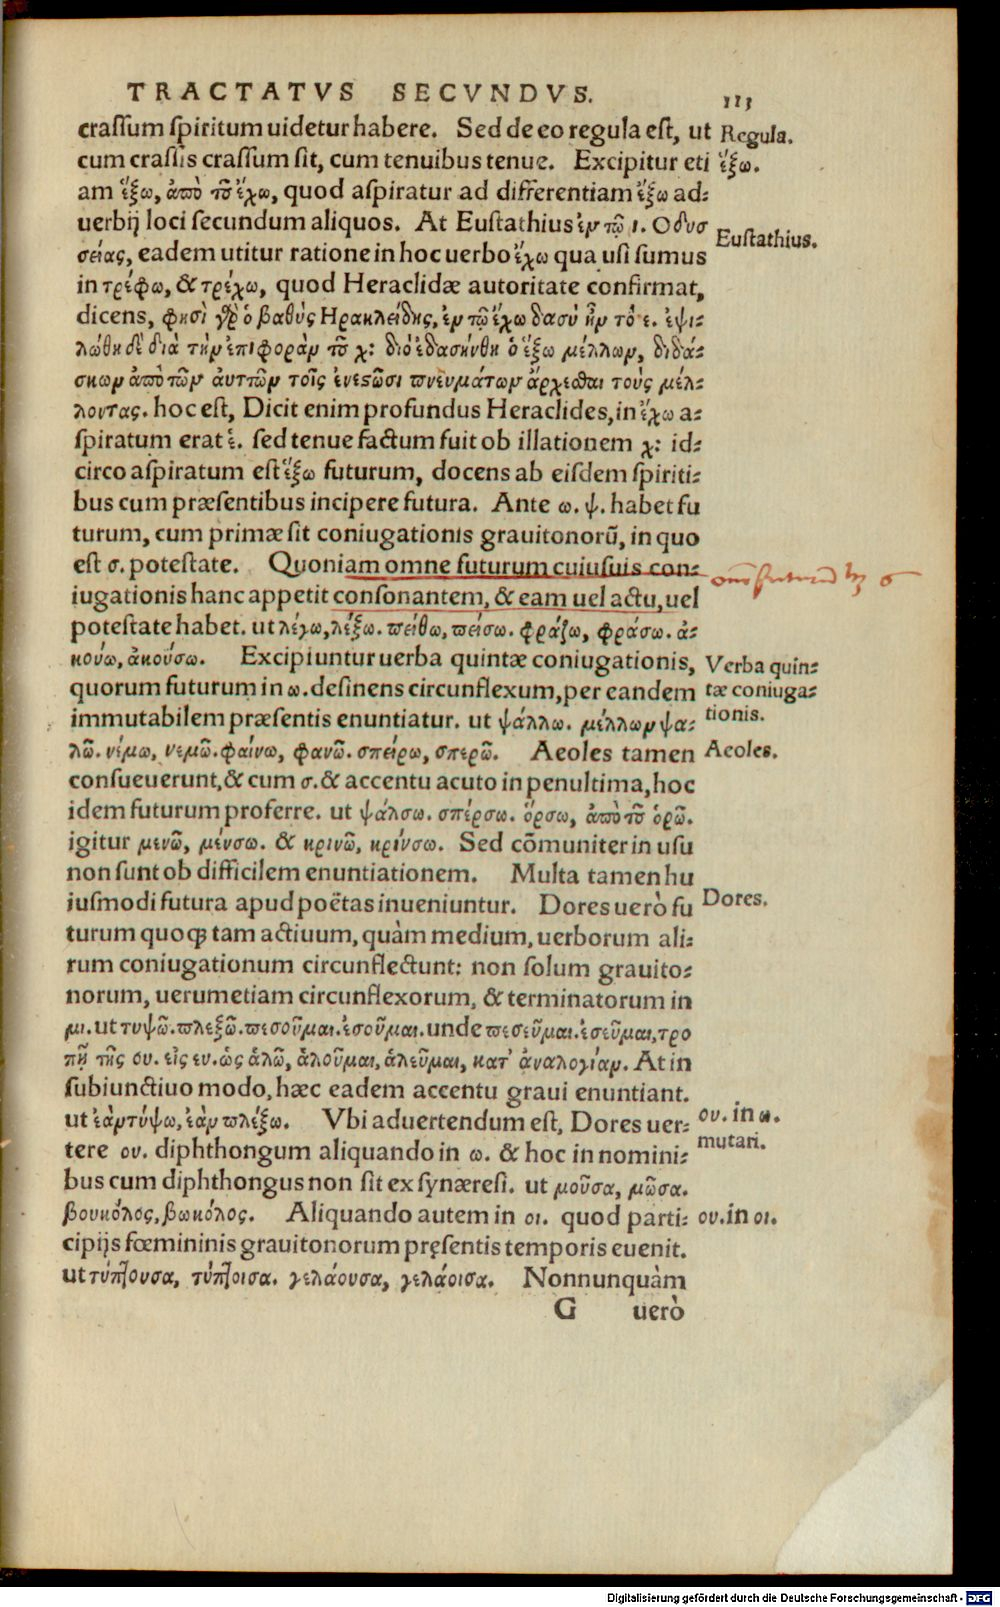 TRACTATVS SECVNDVS.
113
craſſum ſpiritum uidetur habere. Sed de eo regula eſt, ut
Regula.
cum craſſis craſſum ſit, cum tenuibus tenue. Excipitur eti
ἕξω.
am ἕξω, ἀπὸ τοῦ ἔχω, quod aſpiratur ad differentiam ἔξω ad-
uerbij loci ſecundum aliquos. At Euſtathius ἐν τῷ ι. Οδυσ
Euſtathius.
σείας, eadem utitur ratione in hoc uerbo ἔχω qua uſi ſumus
in τρέφω, & τρέχω, quod Heraclidæ autoritate confirmat,
dicens, φησὶ γὰρ ὁ βαθὺς Ηρακλείδης, ἐν τῷ ἔχω δασὺ ἦν τὸ ε. ἐψι-
λώθη δὲ διὰ τὴν ἐπιφορὰν τοῦ χ: διὸ ἐδασύνθη ὁ ἕξω μέλλων, διδά-
σκων ἀπὸ τῶν ἀυττῶν τοῖς ἐνεστῶσι πνευμάτων ἄρχεσθαι τοὺς μέλ-
λοντας. hoc eſt, Dicit enim profundus Heraclides, in ἔχω a-
ſpiratum erat ἑ. ſed tenue factum fuit ob illationem χ: id-
circo aſpiratum eſt ἕξω futurum, docens ab eiſdem ſpiriti-
bus cum præſentibus incipere futura. Ante ω. ψ. habet fu
turum, cum primæ ſit coniugationis grauitonorū, in quo
eſt σ. poteſtate. Quoniam omne futurum cuiuſuis con-
iugationis hanc appetit conſonantem, & eam uel actu, uel
poteſtate habet. ut λέγω, λέξω. πείθω, πείσω. φράζω, φράσω. ἀ-
κούω, ἀκούσω. Excipiuntur uerba quintæ coniugationis,
Verba quin-
quorum futurum in ω. deſinens circunflexum, per eandem
tæ coniuga-
immutabilem præſentis enuntiatur. ut ψάλλω. μέλλων ψα-
tionis.
λῶ. νέμω, νεμῶ. φαίνω, φανῶ. σπείρω, σπερῶ. Aeoles tamen
Aeoles.
conſueuerunt, & cum σ. & accentu acuto in penultima, hoc
idem futurum proferre. ut ψάλσω. σπέρσω. ὄρσω, ἀπὸ τοῦ ὀρῶ.
igitur μενῶ, μένσω. & κρινῶ, κρίνσω. Sed cōmuniter in uſu
non ſunt ob difficilem enuntiationem. Multa tamen hu
iuſmodi futura apud poëtas inueniuntur. Dores uerò fu
Dores.
turum quoq; tam actiuum, quàm medium, uerborum ali-
rum coniugationum circunflectunt: non ſolum grauito-
norum, uerumetiam circunflexorum, & terminatorum in
μι. ut τυψῶ. πλεξῶ. πεσοῦμαι. ἐσοῦμαι. unde πεσεῦμαι. ἐσεῦμαι, τρο
πῇ τῆς ου. εἰς ευ. ὡς ἁλῶ, ἁλοῦμαι, ἁλεῦμαι, κατ᾽ ἀναλογίαν. At in
ſubiunctiuo modo, hæc eadem accentu graui enuntiant.
ut ἐὰν τύψω, ἐὰν πλέξω. Vbi aduertendum eſt, Dores uer-
ου. in ω.
tere ου. diphthongum aliquando in ω. & hoc in nomini-
mutari.
bus cum diphthongus non ſit ex ſynæreſi. ut μοῦσα, μῶσα.
βουκόλος, βωκόλος. Aliquando autem in οι. quod parti-
ου. in οι.
cipijs fœmininis grauitonorum pręſentis temporis euenit.
ut τύπτουσα, τύπτοισα. γελάουσα, γελάοισα. Nonnunquàm
G uerò
Digitalisierung gefördert durch die Deutsche Forschungsgemeinschaft - DFG